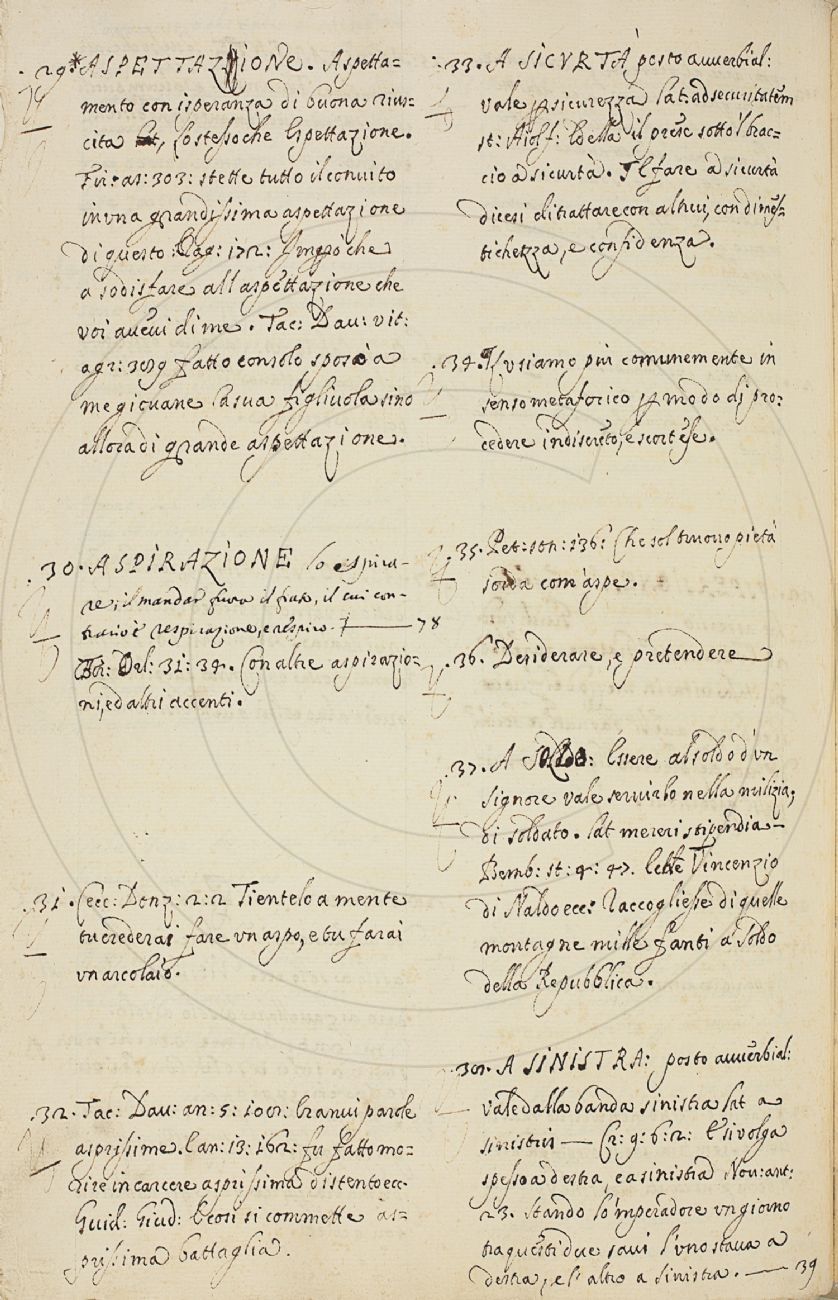 29* ASPETTAZIONE. Aspetta=
mento con isperanza di buona rius=
cita lat, Lo stesso che Espettazione.
Fir: as: 303: stette tutto il convito
in una grandissima aspettazione
di questo: Cag: 172: Impò che
a sodisfare all aspettazione che
voi aueui di me. Tac: Dau: vit:
agr: 389 fatto consolo sposò a
me giouane la sua figliuola sino
allora di grande aspettazione.
30. ASPIRAZIONE lo spira-
re, il mandar fuora il fiato, il cui con-
trario è respirazione, e respiro. 78
Orl: 31: 34. Con altre aspirazio=
ni, ed altri accenti.
31. Cecc: Donz: 2: 2 Tientelo a mente
tu crederai fare un aspo, e tu farai
un arcolaio.
32. Tac: Dau: an: 5: 108: Eranui parole
asprissime. Ean: 13: 162: fu fatto mo=
rire in carcere asprissima di stento ecc.
Guid: Giud: E così si commette as=
prissima battaglia.
33. A SICURTÀ posto auuerbial:
vale p sicurezza lat: ad securitatem
st: Aiolf: Ed ella il prese sotto 'l brac=
cio a sicurtà. Il fare a sicurtà
dicesi di trattare con altrui, con dimes=
tichezza, e confidenza.
34. L'usiamo più comunemente in
senso metaforico p modo di pro:
cedere indiscreto, e scortese.
35. Pet: son: 136: Che sol truouo pietà
sorda com' aspe.
36. Desiderare, e pretendere
37. A SOLDO: Essere al soldo d'un
signore vale seruirlo nella milizia,
di soldato. lat mereri stipendia—
Bemb: st: 4: 47. Vincenzio
di Naldo ecc: raccogliesse di quelle
montagne mille fanti a soldo
della Repubblica.
38. A SINISTRA: posto auuerbial:
vale dalla banda sinistra lat a
sinistris — Cr: 9: 6: 2: E si volga
spesso a destra, e a sinistra Nou: ant:
23. Stando lo 'mperadore un giorno
tra questi due saui l'uno staua a
destra, e l'altro a sinistra. — 39